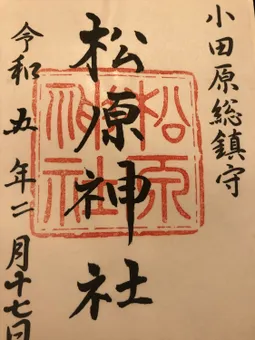 小田原総鎮守
松原神社
松原
神社
令和五年二月十七日